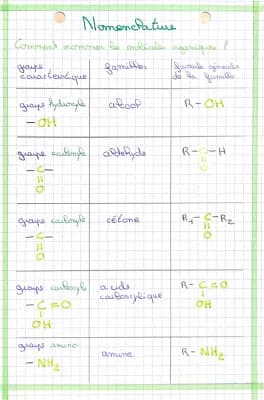 Nomenclature
Comment nommer les molécules organiques ?
groupe caractéristique | familles | formule générale de la famille
groupe hydroxyle | alcool | R - OH
- OH
groupe carbonyle | aldéhyde | R - C - H
- C - | O
O
groupe carbonyle | cétone | R₁ - C - R₂
- C - | O
O
groupe carboxyle | acide carboxylique | R - C = O
- C = O | OH
OH
groupe amino | amine | R - NH₂
- NH₂